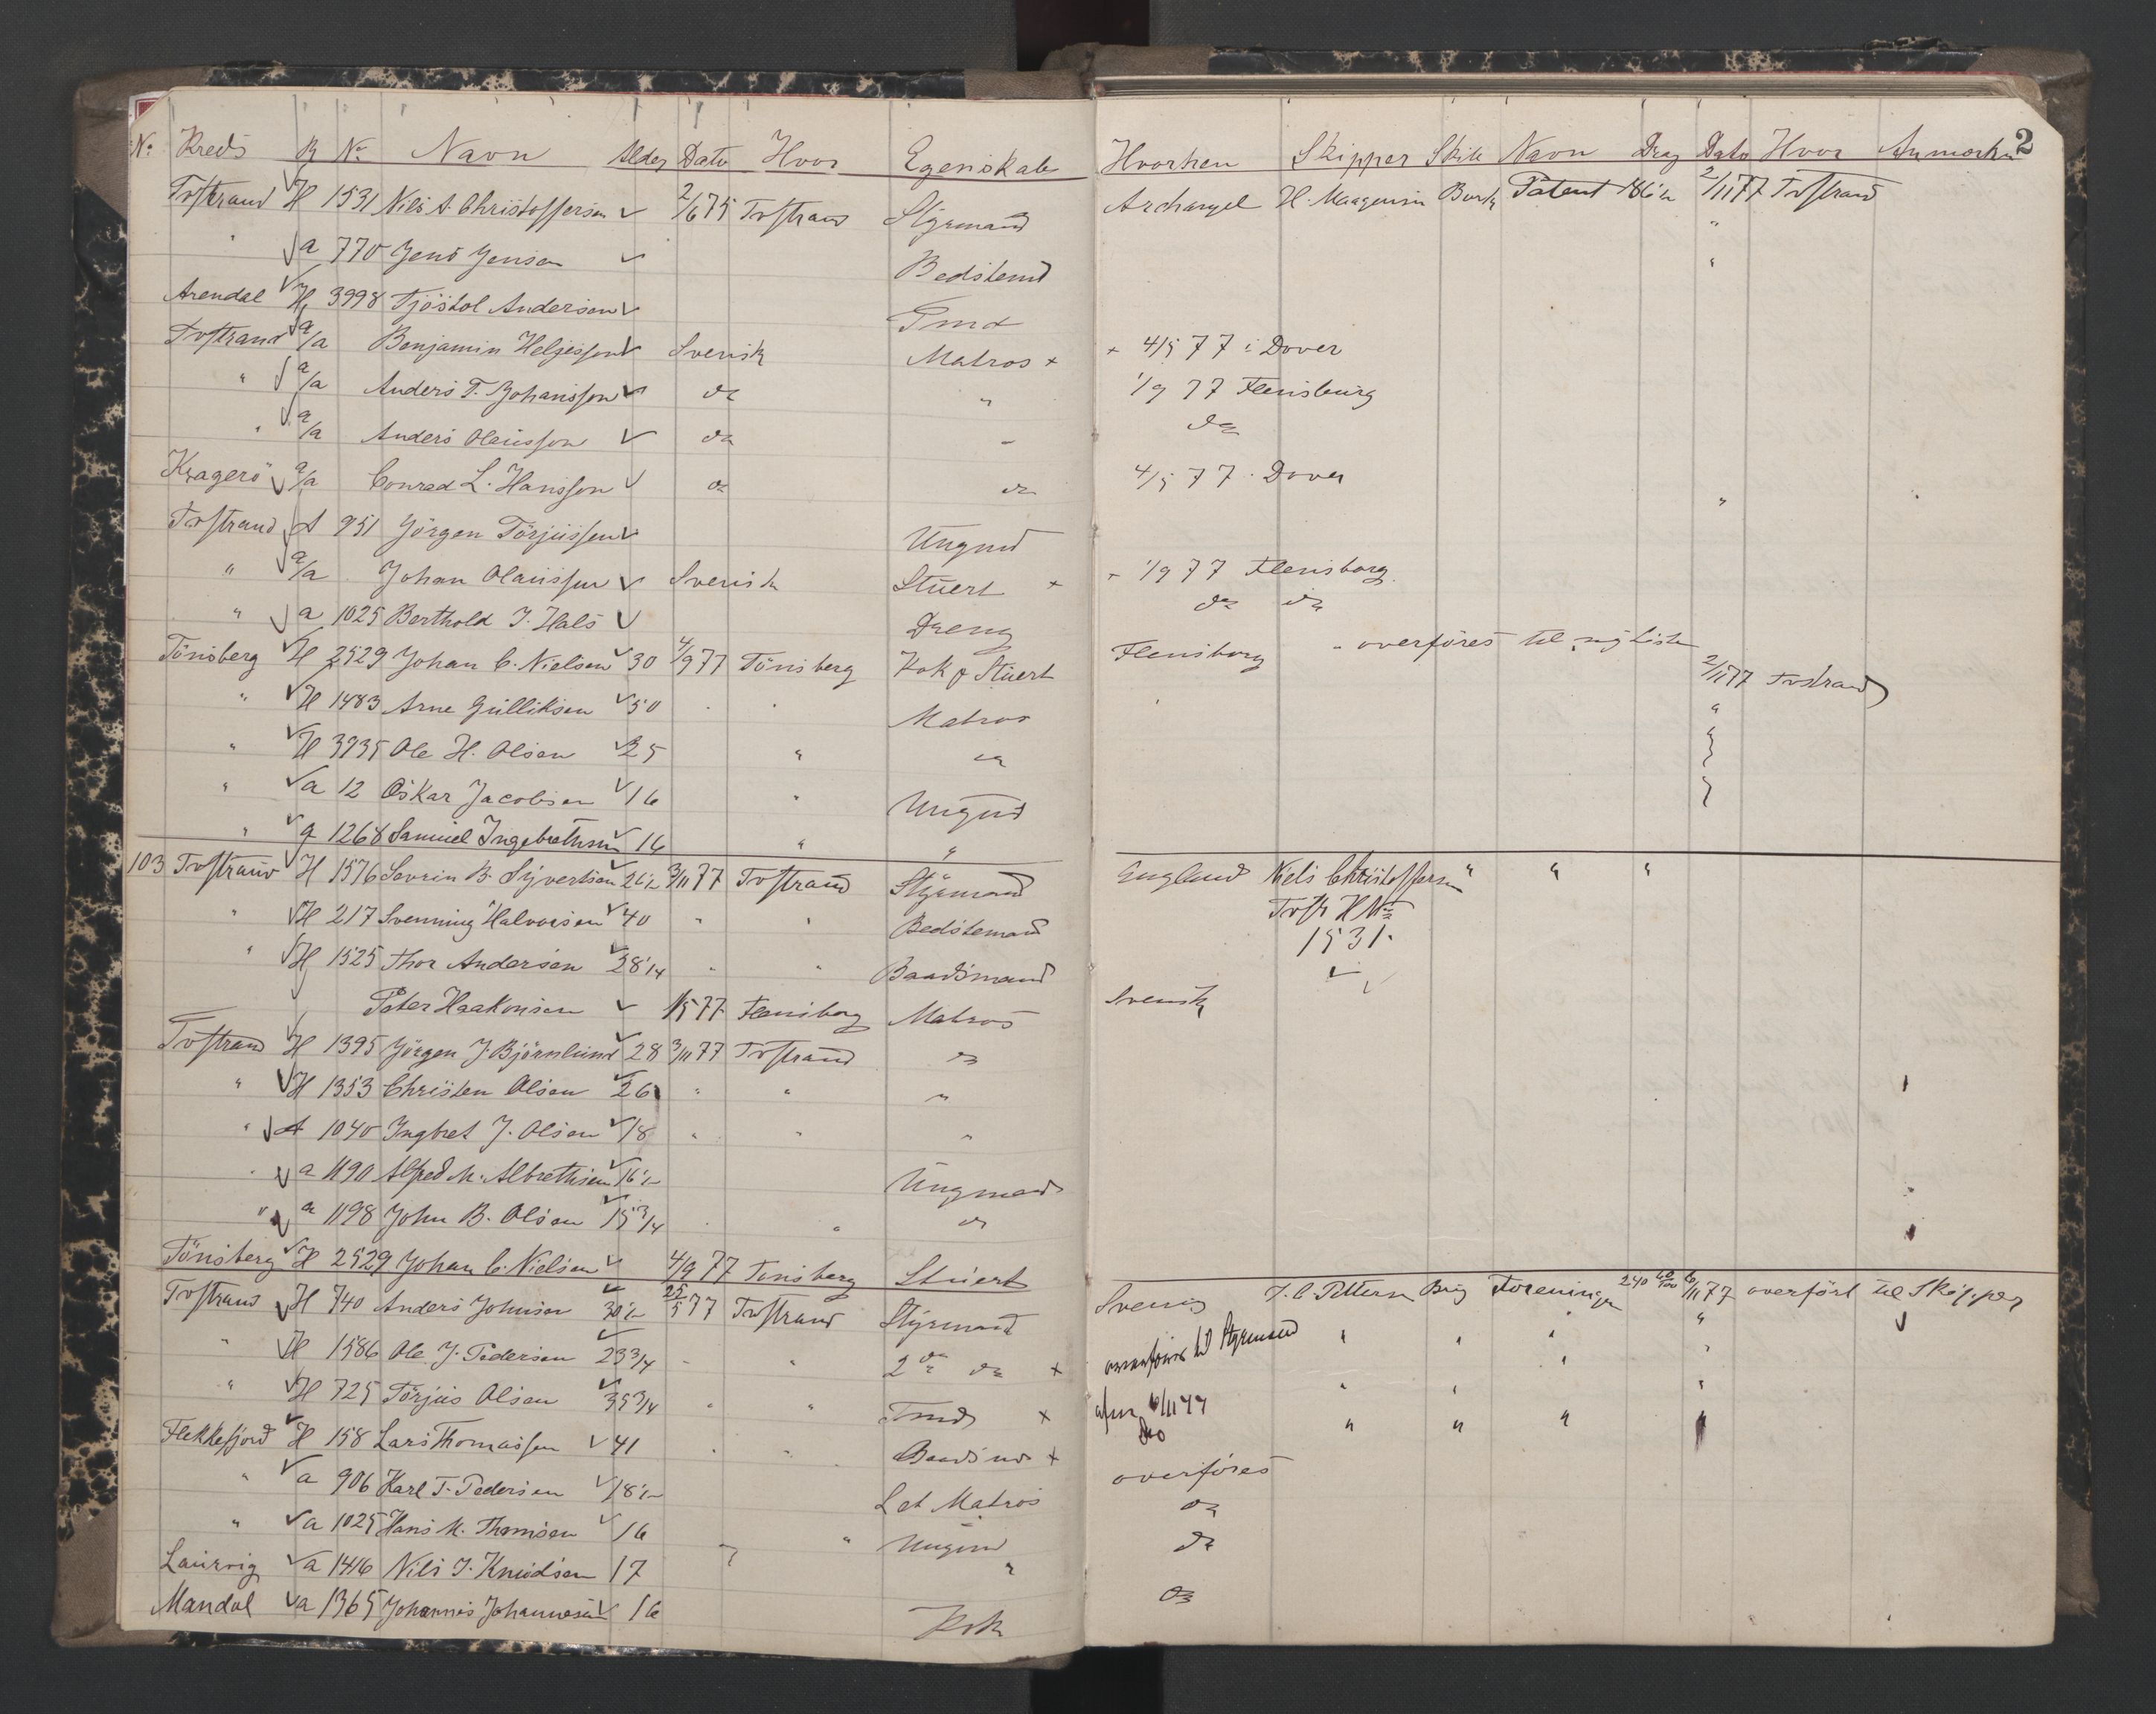 No Kreds R No Navn Alder Dato Hvor Egenskab Hvorhen Skipper Skib Navn Drag Dato Hvor Anmærkn 2
Tvstrand H 1531 Nils A. Christoffersen 2/6 75 Tvstrand Styrmand Archangel H. Maagensen Bark Patent 186 1/2 2/11 77 Tvstrand
" a 770 Jens Jensen Bedstemd "
Arendal H 3998 Tjöstol Andersen Tmd "
Tvstrand a/a Benjamin Helgesson Svensk Matros + + 4/5 77 i Dover
" a/a Anders T. Johansson do " 1/9 77 Flensburg
" a/a Anders Olausson do " do
Kragerö a/a Conrad L. Hansson do do 4/5 77 Dover
Tvstrand A 951 Jörgen Törjussen Ungmd "
" a/a Johan Olausson Svensk Stuert + + 1/9 77 Flensborg
" a 1025 Berthold J. Hals Dreng do do
Tönsberg H 2529 Johan C. Nielsen 30 4/9 77 Tönsberg Kok & Stuert Flensborg - overföres til ny Liste
" H 1483 Arne Gulliksen 50 " " Matros 2/11 77 Tvstrand
" H 3935 Ole H. Olsen 25 " do "
" a 12 Oskar Jacobsen 16 " Ungmd "
" a 1268 Samuel Ingebrethsen 16 " "
103 Tvstrand H 1576 Severin B. Syvertsen 26 1/2 3/11 77 Tvstrand Styrmand England Niels Christoffersen " " "
" H 217 Svenning Halvorsen 40 " " Bedstemand Tvstr H No
" H 1525 Thor Andersen 28 1/4 " " Baadsmand 1531.
Peter Haakonsen 1/5 77 Flensborg Matros Svensk
Tvstrand H 1395 Jörgen J. Björnlund 28 3/11 77 Tvstrand do
" H 1353 Christen Olsen 26 " " "
" A 1040 Ingbret J. Olsen 18 " " "
" a 1190 Alfred M. Albrethsen 16 1/2 Ungmand
" a 1198 John B. Olsen 15 3/4 " " do
Tönsberg H 2529 Johan C. Nielsen 4/9 77 Tönsberg Stuert
Tvstrand H 740 Anders Johnsen 30 1/2 22/5 77 Tvstrand Styrmand Sverig J. C. Pettersen Brig Foreningen 240 60/100 6/11 77 overfört til Skipper
" H 1586 Ole J. Pedersen 23 3/4 " " 2den do + overföres til Styrmand " " " "
" H 725 Törjus Olsen 35 3/4 " " Tmd + afm 6/11 77 " " " "
Flekkefjord H 158 Lars Thomassen 41 " " Baadsmd + Do " " " "
" a 906 Karl T. Pedersen 18 1/2 Let Matros overföres
" a 1025 Hans M. Thomsen 16 " Ungmd do
Laurvig a 1416 Nils J. Knudsen 17 " do
Mandal a 1365 Johannes Johannesen 16 Kok do